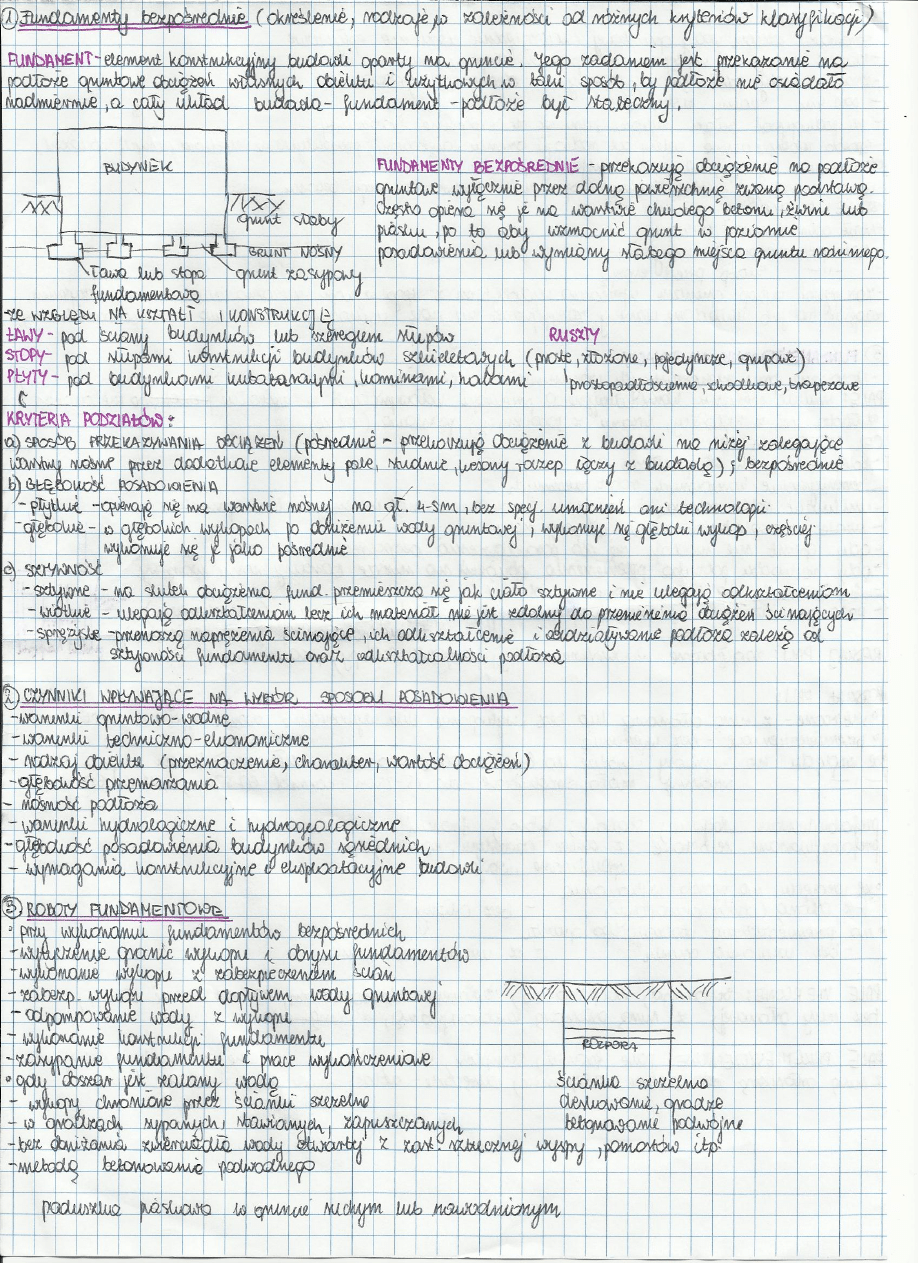 ① Fundamenty bezpośrednie (określenie, rodzaje, w zależności od różnych kryteriów klasyfikacji)
FUNDAMENT - element konstrukcyjny budowli oparty na gruncie. Jego zadaniem jest przekazanie na
podłoże gruntowe obciążeń własnych obiektu i użytkowych w taki sposób, by podłoże nie osiadało
nadmiernie, a cały układ budowla - fundament - podłoże był stateczny.
BUDYNEK
grunt słaby
GRUNT NOŚNY
grunt zasypowy
ława lub stopa
fundamentowa
FUNDAMENTY BEZPOŚREDNIE - przekazują obciążenie na podłoże
gruntowe wyłącznie przez dolną powierzchnię zwaną podstawą.
Często opiera się je na warstwie chudego betonu, żwiru lub
piasku, po to aby wzmocnić grunt w poziomie
posadowienia lub wymiany słabego miejsca gruntu rodzimego.
-ZE WZGLĘDU NA KSZTAŁT I KONSTRUKCJĘ
ŁAWY - pod ściany budynków lub szeregiem słupów RUSZTY
STOPY - pod słupami konstrukcji budynków szkieletowych (proste, złożone, pojedyncze, grupowe)
PŁYTY - pod budynkami, kominami, halami prostopadłościenne, schodkowe, trapezowe
KRYTERIA PODZIAŁÓW:
a) SPOSÓB PRZEKAZYWANIA OBCIĄŻEŃ (pośrednie - przekazują obciążenie z budowli na niżej zalegające
warstwy nośne przez dodatkowe elementy pale, studnie, kesony łączy z budowlą); bezpośrednie
b) GŁĘBOKOŚĆ POSADOWIENIA
- płytkie - opierają się na warstwie nośnej na gł. 4-5m, bez specj. umocnień ani technologii
- głębokie - w głębokich wykopach po obniżeniu wody gruntowej, wykonuje się głęboki wykop, częściej
wykonuje się je jako pośrednie
c) SZTYWNOŚĆ
- sztywne - na skutek obciążenia fund. przemieszcza się jak ciało sztywne i nie ulegają odkształceniom
- wiotkie - ulegają odkształceniom lecz ich materiał nie jest zdolny do przeniesienia obciążeń ścinających
- sprężyste - przenoszą naprężenia ścinające, ich odkształcenie i oddziaływanie podłoża zależą od
sztywności fundamentu oraz odkształcalności podłoża
② CZYNNIKI WPŁYWAJĄCE NA WYBÓR SPOSOBU POSADOWIENIA
- warunki gruntowo-wodne
- warunki techniczno-ekonomiczne
- rodzaj obiektu (przeznaczenie, charakter, wartość obciążeń)
- głębokość przemarzania
- nośność podłoża
- warunki hydrologiczne i hydrogeologiczne
- głębokość posadowienia budynków sąsiednich
- wymagania konstrukcyjne i eksploatacyjne budowli
③ ROBOTY FUNDAMENTOWE
• przy wykonaniu fundamentów bezpośrednich
- wytyczenie granic wykopu i obrysu fundamentów
- wykonanie wykopu z zabezpieczeniem ścian
- zabezp. wykopu przed dopływem wody gruntowej
- odpompowanie wody z wykopu
- wykonanie konstrukcji fundamentu
- zasypanie fundamentu i prace wykończeniowe
• gdy obszar jest zalany wodą
- wykopy chronione przez ścianki szczelne
- w grodzach sypanych, stawianych, zapuszczanych
- bez obniżania zwierciadła wody otwartej z zast. sztucznej wyspy, pomostów itp.
- metodą betonowania podwodnego
ROZPORA
ścianka szczelna
deskowanie, grodze
betonowanie podwójne
poduszka piaskowa w gruncie suchym lub nawodnionym